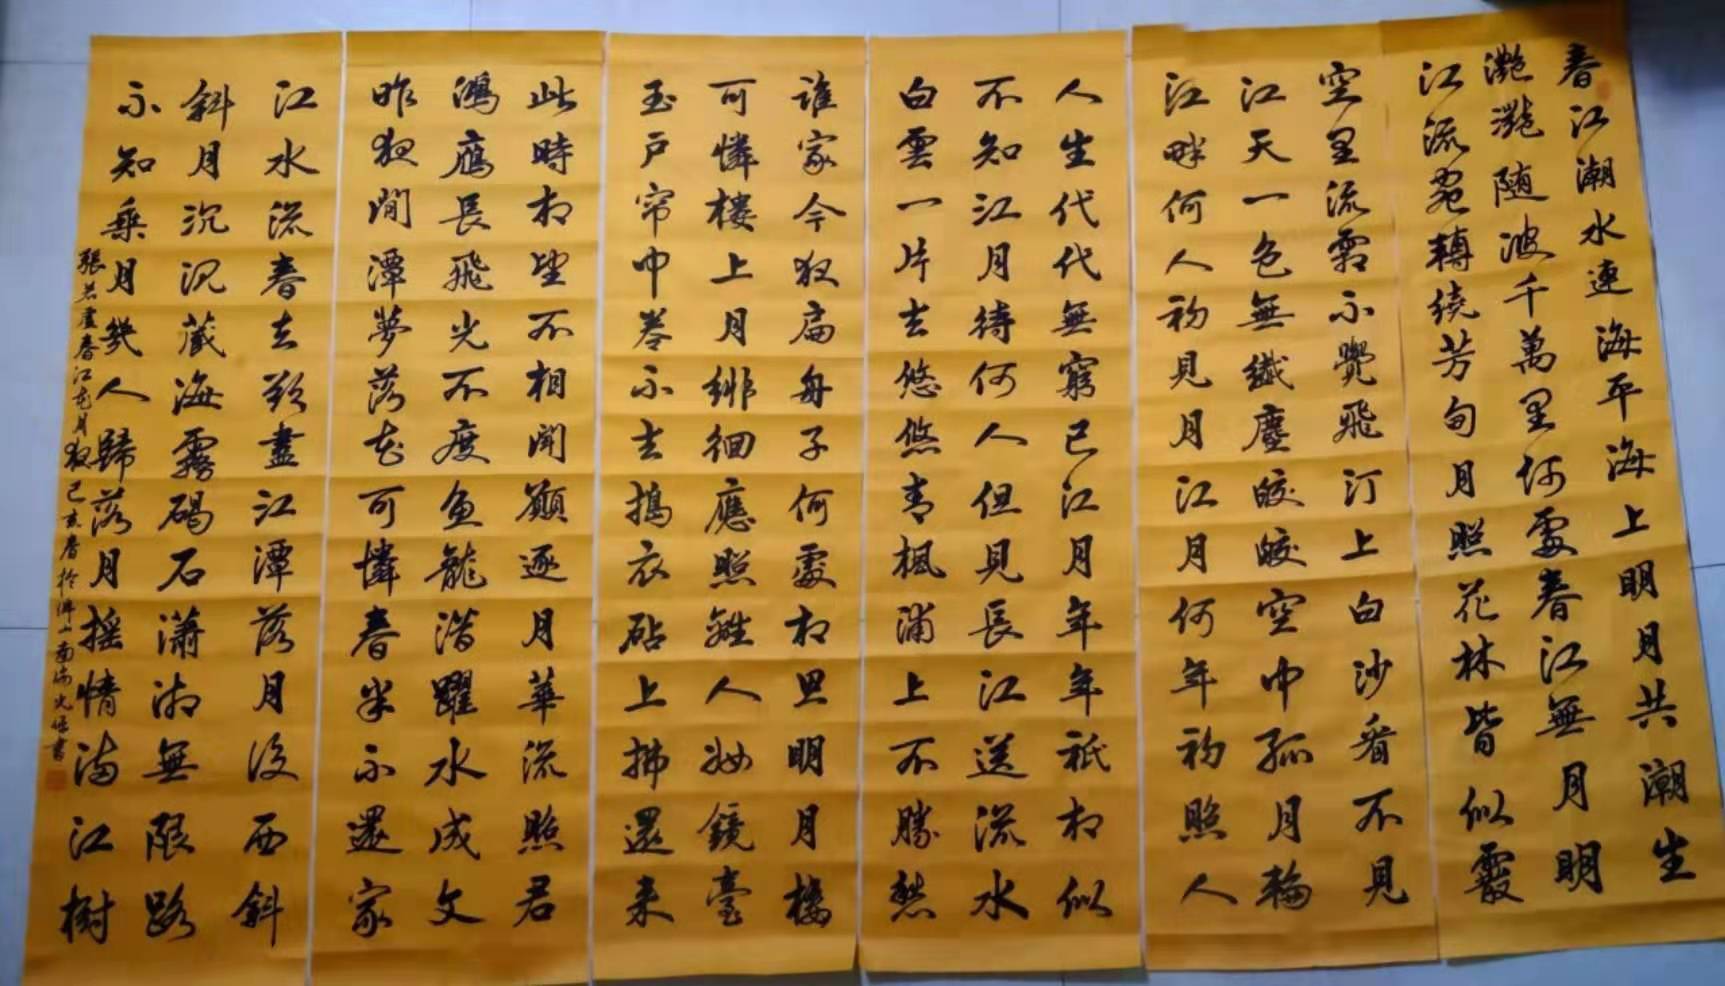 春江潮水連海平海上明月共潮生
灧灧随波千萬里何處春江無月明
江流宛轉繞芳甸月照花林皆似霰
空里流霜不覺飛汀上白沙看不見
江天一色無纖塵皎皎空中孤月輪
江畔何人初見月江月何年初照人
人生代代無窮已江月年年衹相似
不知江月待何人但見長江送流水
白雲一片去悠悠青楓浦上不勝愁
誰家今夜扁舟子何處相思明月樓
可憐樓上月徘徊應照離人妝鏡臺
玉户帘中卷不去搗衣砧上拂還来
此時相望不相聞願逐月華流照君
鴻雁長飛光不度魚龍潛躍水成文
昨夜閒潭夢落花可憐春半不還家
江水流春去欲盡江潭落月復西斜
斜月沉沉藏海霧碣石瀟湘無限路
不知乘月幾人歸落月摇情滿江樹
張若虛春江花月夜己亥春於上書